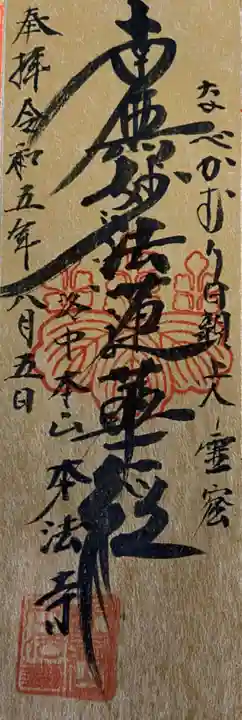 なべかむり日親上人霊窟
南無妙法蓮華経
洛中本山本法寺
奉拝令和五年八月五日